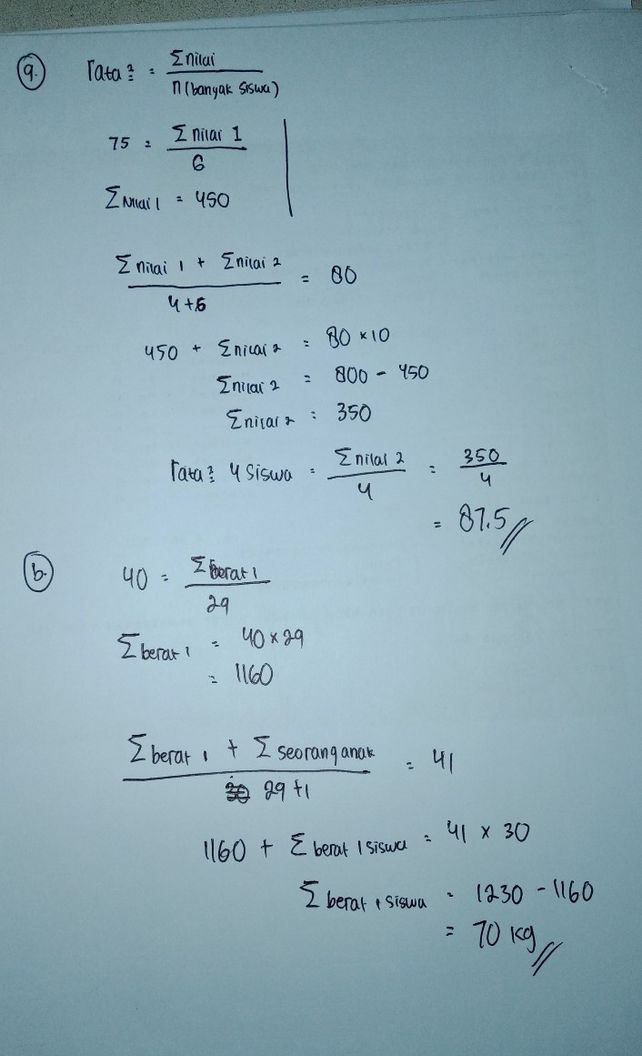 a. rata² = Σnilai / n (banyak siswa)
75 = Σ nilai 1 / 6
Σ Nilai 1 = 450
Σ nilai 1 + Σnilai 2 / 4+6 = 80
450 + Σnilai 2 = 80 × 10
Σnilai 2 = 800 - 450
Σnilai 2 = 350
rata² 4 siswa = Σ nilai 2 / 4 = 350 / 4
= 87.5
b. 40 = Σ berat 1 / 29
Σ berat 1 = 40 × 29
= 1160
Σ berat 1 + Σ seorang anak / 29 +1 = 41
1160 + Σ berat 1 siswa = 41 × 30
Σ berat 1 siswa = 1230 - 1160
= 70 kg